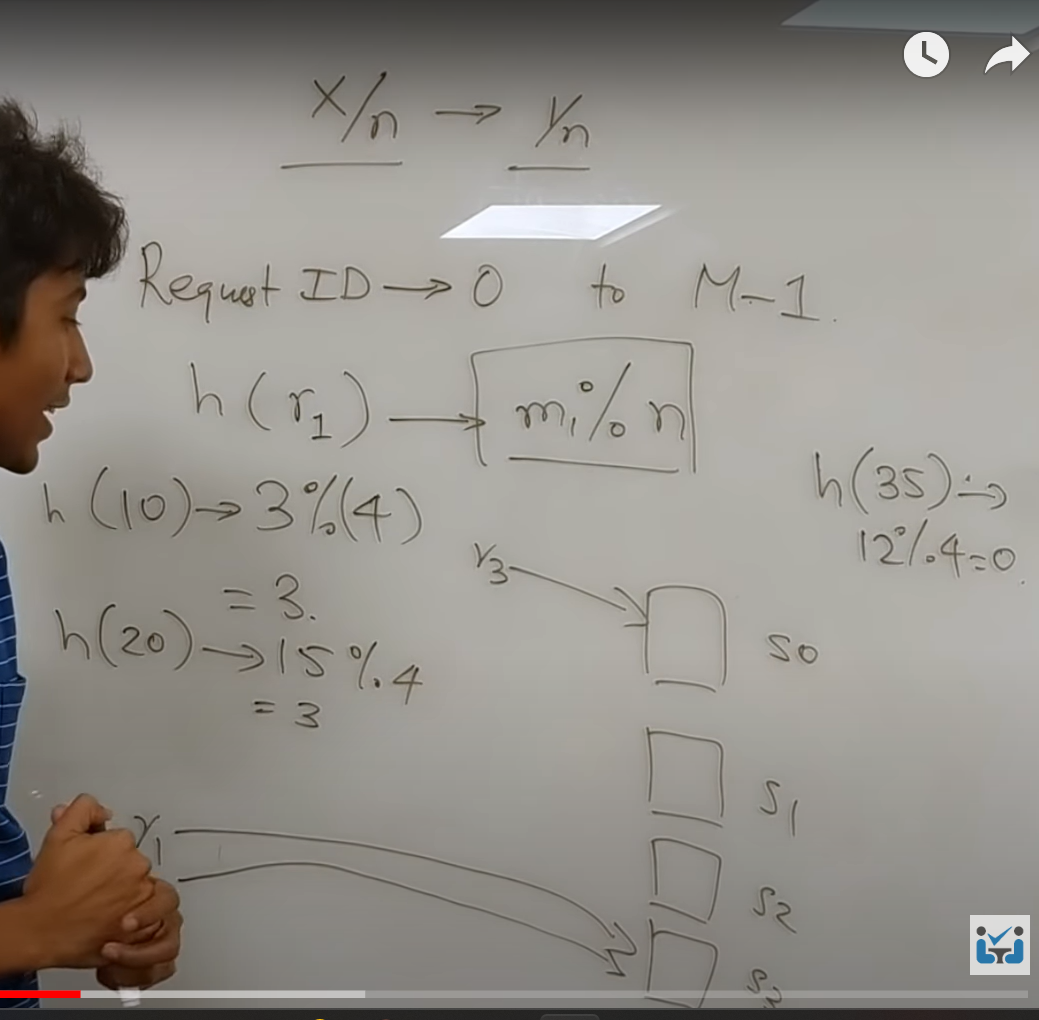 X/n → Y/n
Request ID → 0 to M-1.
h(r₁) → m₁%n
h(10) → 3%(4)
= 3.
h(20) → 15%4
= 3
h(35) →
12%4=0.
r₃
S0
S1
S2
S3
r₁